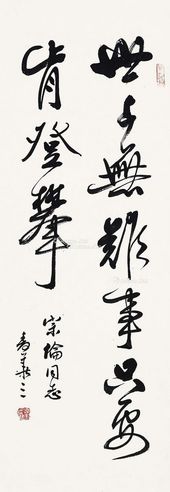 世上無難事只要
肯登攀
宗掄同志